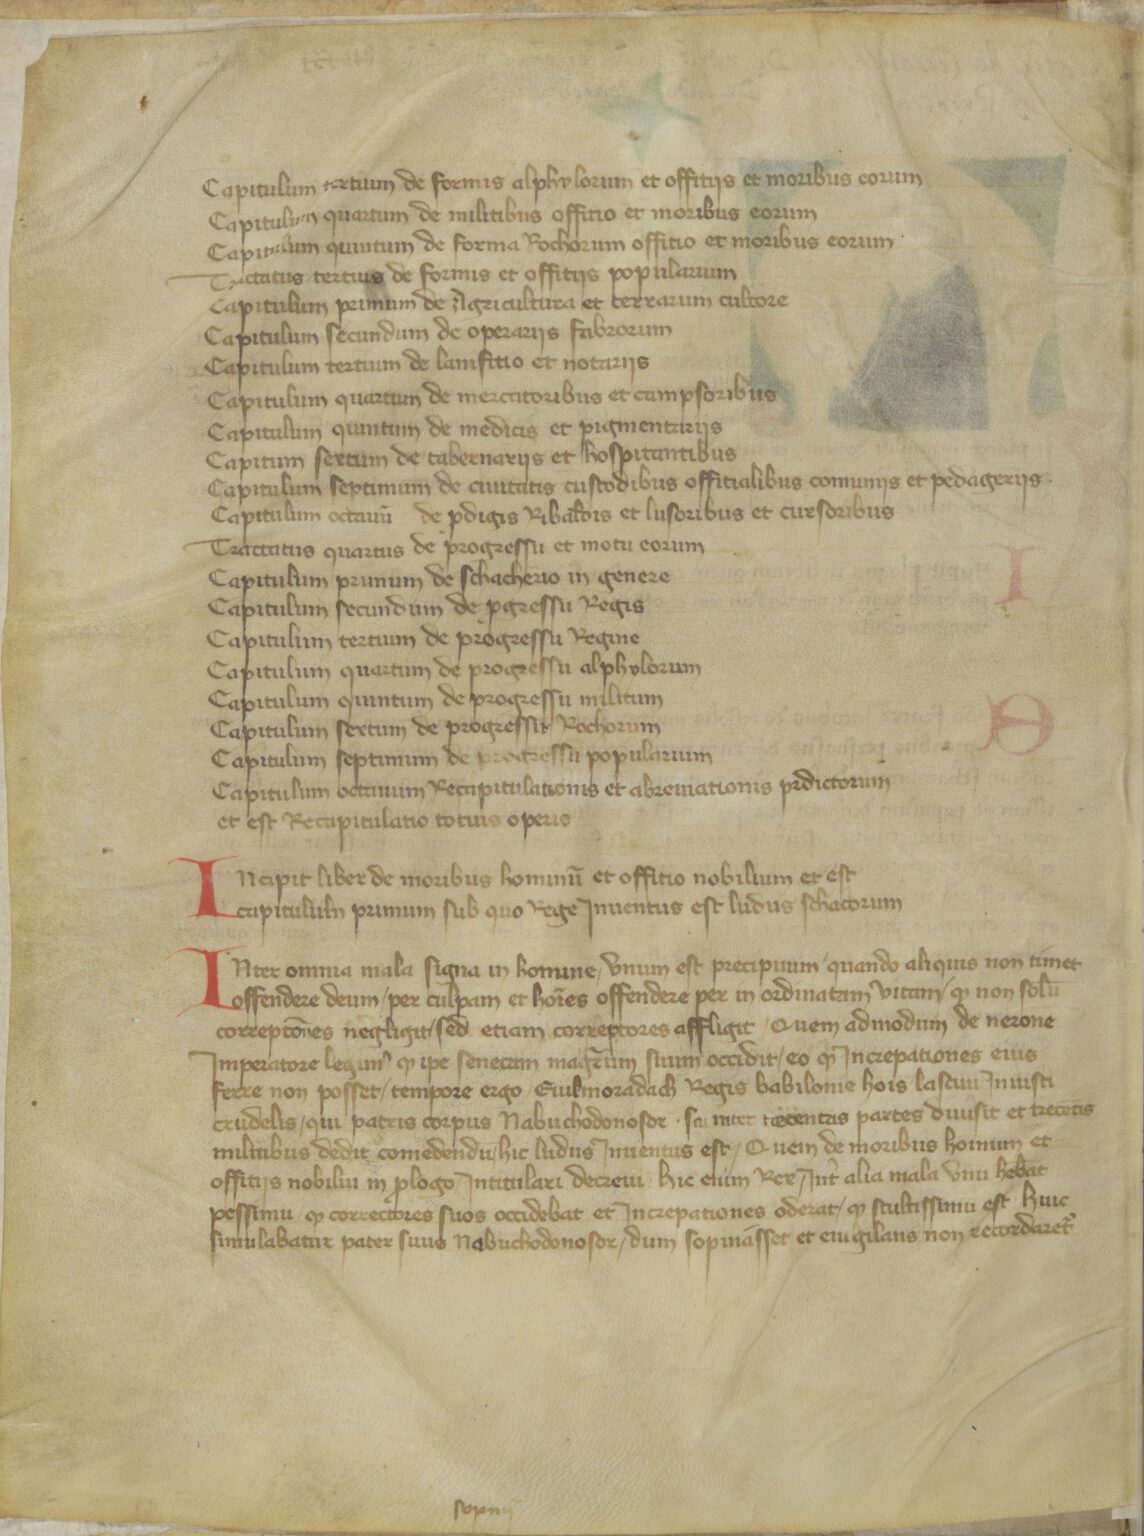 Capitulum tertium de formis alphylorum et offitijs et moribus eorum
Capitulum quartum de militibus offitio et moribus eorum
Capitulum quintum de forma Rochorum offitio et moribus eorum
Tractatus tertius de formis et offitijs popularium
Capitulum primum de Agricultura et terrarum cultore
Capitulum secundum de operarijs fabrorum
Capitulum tertium de lanifitio et notarijs
Capitulum quartum de mercatoribus et campsoribus
Capitulum quintum de medicis et pigmentarijs
Capitum sextum de tabernarijs et hospitantibus
Capitulum septimum de ciuitatis custodibus offitialibus comunijs et pedagerijs
Capitulum octauū de pdigis Ribaldis et lusoribus et cursoribus
Tractatus quartus de progressu et motu eorum
Capitulum primum de schacherio in genere
Capitulum secundum de pgressu Regis
Capitulum tertium de progressu Regine
Capitulum quartum de progressu alphylorum
Capitulum quintum de progressu militum
Capitulum sextum de progressu Rochorum
Capitulum septimum de progressu popularium
Capitulum octauum Recapitulationis et abreuiationis prdictorum
et est Recapitulatio totius operis
INcipit liber de moribus hominū et offitio nobilium et est
capitulum primum sub quo Rege Inuentus est ludus schacorum
INter omnia mala signa in homine/ Vnum est precipuum/ quando aliquis non timet
offendere deum/ per culpam et hoīes offendere per in ordinatam vitam/ qͥ non solū
correptōnes negligit/ sed etiam correptores affligit / Quem admodum de nerone
Imperatore legunt̉ qͥ ipe senecam magr̄um suum occidit/ eo qͥ Increpationes eius
ferre non posset/ tempore ergo Euilmoradach Regis babilonie hois lasciui Iniusti
crudelis/ qui patris corpus Nabuchodonosor trecentas partes diuisit et trecētis
militibus dedit comedendū/ hic ludus Inuentus est/ Quem de moribus hominum et
offitijs nobiliū in plogo Intitulari decreui hic enim Rex/ Int̉ alia mala Vnū hebat
pessimū qͥ correctores suos occidebat et Increpationes oderat/ qͥ stultissimū est huic
simulabatur pater suus Nabuchodonosor/ dum sopinasset et euigilans non recordaret̉